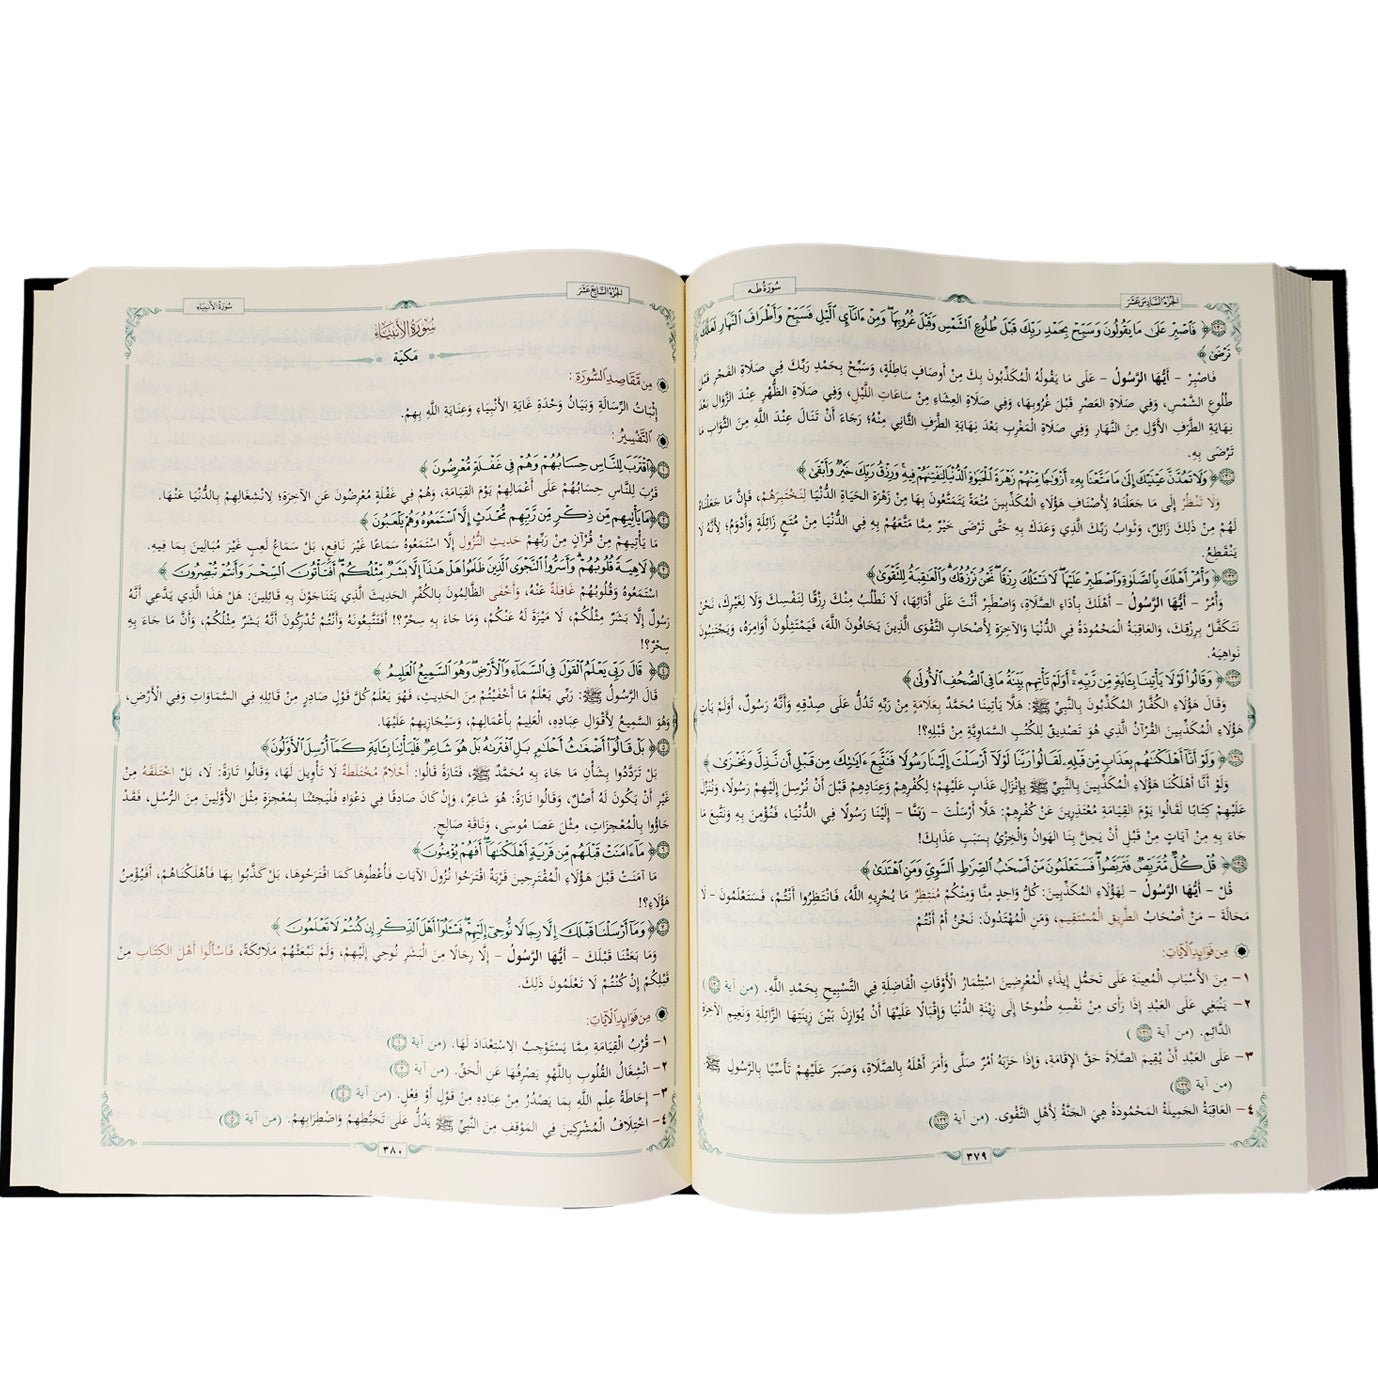 الجزء السادس عشر
سورة طه
﴿ فَٱصۡبِرۡ عَلَىٰ مَا يَقُولُونَ وَسَبِّحۡ بِحَمۡدِ رَبِّكَ قَبۡلَ طُلُوعِ ٱلشَّمۡسِ وَقَبۡلَ غُرُوبِهَاۖ وَمِنۡ ءَانَآيِٕ ٱلَّيۡلِ فَسَبِّحۡ وَأَطۡرَافَ ٱلنَّهَارِ لَعَلَّكَ
تَرۡضَىٰ ﴾
فَاصْبِرْ – أَيُّهَا الرَّسُولُ – عَلَى مَا يَقُولُهُ الْمُكَذِّبُونَ بِكَ مِنْ أَوْصَافٍ بَاطِلَةٍ، وَسَبِّحْ بِحَمْدِ رَبِّكَ فِي صَلَاةِ الفَجْرِ قَبْلَ
طُلُوعِ الشَّمْسِ، وَفِي صَلَاةِ العَصْرِ قَبْلَ غُرُوبِهَا، وَفِي صَلَاةِ العِشَاءِ مِنْ سَاعَاتِ اللَّيْلِ، وَفِي صَلَاةِ الظُّهْرِ عِنْدَ الزَّوَالِ بَعْدَ
نِهَايَةِ الطَّرَفِ الأَوَّلِ مِنَ النَّهَارِ وَفِي صَلَاةِ المَغْرِبِ بَعْدَ نِهَايَةِ الطَّرَفِ الثَّانِي مِنْهُ؛ رَجَاءَ أَنْ تَنَالَ عِنْدَ اللَّهِ مِنَ الثَّوَابِ مَا
تَرْضَى بِهِ.
﴿ وَلَا تَمُدَّنَّ عَيۡنَيۡكَ إِلَىٰ مَا مَتَّعۡنَا بِهِۦٓ أَزۡوَٰجٗا مِّنۡهُمۡ زَهۡرَةَ ٱلۡحَيَوٰةِ ٱلدُّنۡيَا لِنَفۡتِنَهُمۡ فِيهِۚ وَرِزۡقُ رَبِّكَ خَيۡرٞ وَأَبۡقَىٰ ﴾
وَلَا تَنْظُرْ إِلَى مَا جَعَلْنَاهُ لِأَصْنَافِ هَؤُلَاءِ الْمُكَذِّبِينَ مُتْعَةً يَتَمَتَّعُونَ بِهَا مِنْ زَهْرَةِ الحَيَاةِ الدُّنْيَا لِنَخْتَبِرَهُمْ، فَإِنَّ مَا جَعَلْنَاهُ
لَهُمْ مِنْ ذَلِكَ زَائِلٌ، وَثَوَابُ رَبِّكَ الَّذِي وَعَدَكَ بِهِ حَتَّى تَرْضَى خَيْرٌ مِمَّا مَتَّعَهُمْ بِهِ فِي الدُّنْيَا مِنْ مُتَعٍ زَائِلَةٍ وَأَدْوَمُ؛ لِأَنَّهُ لَا
يَنْقَطِعُ.
﴿ وَأۡمُرۡ أَهۡلَكَ بِٱلصَّلَوٰةِ وَٱصۡطَبِرۡ عَلَيۡهَاۖ لَا نَسۡـَٔلُكَ رِزۡقٗاۖ نَّحۡنُ نَرۡزُقُكَۗ وَٱلۡعَٰقِبَةُ لِلتَّقۡوَىٰ ﴾
وَأْمُرْ – أَيُّهَا الرَّسُولُ – أَهْلَكَ بِأَدَاءِ الصَّلَاةِ، وَاصْطَبِرْ أَنْتَ عَلَى أَدَائِهَا، لَا نَطْلُبُ مِنْكَ رِزْقًا لِنَفْسِكَ وَلَا لِغَيْرِكَ، نَحْنُ
نَتَكَفَّلُ بِرِزْقِكَ، وَالعَاقِبَةُ المَحْمُودَةُ فِي الدُّنْيَا وَالآخِرَةِ لِأَصْحَابِ التَّقْوَى الَّذِينَ يَخَافُونَ اللَّهَ، فَيَمْتَثِلُونَ أَوَامِرَهُ، وَيَجْتَنِبُونَ
نَوَاهِيَهُ.
﴿ وَقَالُواْ لَوۡلَا يَأۡتِينَا بِـَٔايَةٖ مِّن رَّبِّهِۦٓۚ أَوَلَمۡ تَأۡتِهِم بَيِّنَةُ مَا فِي ٱلصُّحُفِ ٱلۡأُولَىٰ ﴾
وَقَالَ هَؤُلَاءِ الْكُفَّارُ المُكَذِّبُونَ بِالنَّبِيِّ ﷺ: هَلَّا يَأْتِينَا مُحَمَّدٌ بِعَلَامَةٍ مِنْ رَبِّهِ تَدُلُّ عَلَى صِدْقِهِ وَأَنَّهُ رَسُولٌ، أَوَلَمْ يَأْتِ
هَؤُلَاءِ الْمُكَذِّبِينَ القُرْآنُ الَّذِي هُوَ تَصْدِيقٌ لِلكُتُبِ السَّمَاوِيَّةِ مِنْ قَبْلِهِ؟!
﴿ وَلَوۡ أَنَّآ أَهۡلَكۡنَٰهُم بِعَذَابٖ مِّن قَبۡلِهِۦ لَقَالُواْ رَبَّنَا لَوۡلَآ أَرۡسَلۡتَ إِلَيۡنَا رَسُولٗا فَنَتَّبِعَ ءَايَٰتِكَ مِن قَبۡلِ أَن نَّذِلَّ وَنَخۡزَىٰ ﴾
وَلَوْ أَنَّا أَهْلَكْنَا هَؤُلَاءِ الْمُكَذِّبِينَ بِالنَّبِيِّ ﷺ بِإِنْزَالِ عَذَابٍ عَلَيْهِمْ؛ لِكُفْرِهِمْ وَعِنَادِهِمْ قَبْلَ أَنْ نُرْسِلَ إِلَيْهِمْ رَسُولًا، وَنُنَزِّلَ
عَلَيْهِمْ كِتَابًا لَقَالُوا يَوْمَ القِيَامَةِ مُعْتَذِرِينَ عَنْ كُفْرِهِمْ: هَلَّا أَرْسَلْتَ – رَبَّنَا – إِلَيْنَا رَسُولًا فِي الدُّنْيَا، فَنُؤْمِنَ بِهِ وَنَتَّبِعَ مَا
جَاءَ بِهِ مِنْ آيَاتٍ مِنْ قَبْلِ أَنْ يَحِلَّ بِنَا الهَوَانُ وَالْخِزْيُ بِسَبَبِ عَذَابِكَ!
﴿ قُلۡ كُلّٞ مُّتَرَبِّصٞ فَتَرَبَّصُواْۖ فَسَتَعۡلَمُونَ مَنۡ أَصۡحَٰبُ ٱلصِّرَٰطِ ٱلسَّوِيِّ وَمَنِ ٱهۡتَدَىٰ ﴾
قُلْ – أَيُّهَا الرَّسُولُ – لِهَؤُلَاءِ المُكَذِّبِينَ: كُلُّ وَاحِدٍ مِنَّا وَمِنْكُمْ مُنْتَظِرٌ مَا يُجْرِيهِ اللَّهُ، فَانْتَظِرُوا أَنْتُمْ، فَسَتَعْلَمُونَ – لَا
مَحَالَةَ – مَنْ أَصْحَابُ الطَّرِيقِ المُسْتَقِيمِ، وَمَنِ المُهْتَدُونَ: نَحْنُ أَمْ أَنْتُمْ
مِن فَوَائِدِ الآيَاتِ:
١– مِنَ الأَسْبَابِ المُعِينَةِ عَلَى تَحَمُّلِ إِيذَاءِ الْمُعْرِضِينَ اسْتِثْمَارُ الْأَوْقَاتِ الْفَاضِلَةِ فِي التَّسْبِيحِ بِحَمْدِ اللَّهِ. (من آية ١٣٠)
٢– يَنْبَغِي عَلَى العَبْدِ إِذَا رَأَى مِنْ نَفْسِهِ طُمُوحًا إِلَى زِينَةِ الدُّنْيَا وَإِقْبَالًا عَلَيْهَا أَنْ يُوَازِنَ بَيْنَ زِينَتِهَا الزَّائِلَةِ وَنَعِيمِ الآخِرَةِ
الدَّائِمِ. (من آية ١٣١)
٣– عَلَى العَبْدِ أَنْ يُقِيمَ الصَّلَاةَ حَقَّ الإِقَامَةِ، وَإِذَا حَزَبَهُ أَمْرٌ صَلَّى وَأَمَرَ أَهْلَهُ بِالصَّلَاةِ، وَصَبَرَ عَلَيْهِمْ تَأَسِّيًا بِالرَّسُولِ ﷺ
(من آية ١٣٢)
٤– العَاقِبَةُ الجَمِيلَةُ المَحْمُودَةُ هِيَ الجَنَّةُ لِأَهْلِ التَّقْوَى. (من آية ١٣٢)
٣٧٩
الجزء السابع عشر
سورة الأنبياء
سُورَةُ الأَنبِيَاءِ
مَكيّة
مِن مَّقَاصِدِ السُّورَةِ :
إِثْبَاتُ الرِّسَالَةِ وَبَيَانُ وَحْدَةِ غَايَةِ الأَنْبِيَاءِ وَعِنَايَةِ اللَّهِ بِهِمْ.
التَّفْسِيرُ :
﴿ ٱقۡتَرَبَ لِلنَّاسِ حِسَابُهُمۡ وَهُمۡ فِي غَفۡلَةٖ مُّعۡرِضُونَ ﴾
قَرُبَ لِلنَّاسِ حِسَابُهُمْ عَلَى أَعْمَالِهِمْ يَوْمَ القِيَامَةِ، وَهُمْ فِي غَفْلَةٍ مُعْرِضُونَ عَنِ الآخِرَةِ؛ لِانْشِغَالِهِمْ بِالدُّنْيَا عَنْهَا.
﴿ مَا يَأۡتِيهِم مِّن ذِكۡرٖ مِّن رَّبِّهِم مُّحۡدَثٍ إِلَّا ٱسۡتَمَعُوهُ وَهُمۡ يَلۡعَبُونَ ﴾
مَا يَأْتِيهِمْ مِنْ قُرْآنٍ مِنْ رَبِّهِمْ حَدِيثِ النُّزُولِ إِلَّا اسْتَمَعُوهُ سَمَاعًا غَيْرَ نَافِعٍ، بَلْ سَمَاعَ لَعِبٍ غَيْرَ مُبَالِينَ بِمَا فِيهِ.
﴿ لَاهِيَةٗ قُلُوبُهُمۡۗ وَأَسَرُّواْ ٱلنَّجۡوَى ٱلَّذِينَ ظَلَمُواْ هَلۡ هَٰذَآ إِلَّا بَشَرٞ مِّثۡلُكُمۡۖ أَفَتَأۡتُونَ ٱلسِّحۡرَ وَأَنتُمۡ تُبۡصِرُونَ ﴾
اسْتَمَعُوهُ وَقُلُوبُهُمْ غَافِلَةٌ عَنْهُ، وَأَخْفَى الظَّالِمُونَ بِالْكُفْرِ الحَدِيثَ الَّذِي يَتَنَاجَوْنَ بِهِ قَائِلِينَ: هَلْ هَذَا الَّذِي يَدَّعِي أَنَّهُ
رَسُولٌ إِلَّا بَشَرٌ مِثْلُكُمْ، لَا مَيْزَةَ لَهُ عَنْكُمْ، وَمَا جَاءَ بِهِ سِحْرٌ؟! أَفَتَتَّبِعُونَهُ وَأَنْتُمْ تُدْرِكُونَ أَنَّهُ بَشَرٌ مِثْلُكُمْ، وَأَنَّ مَا جَاءَ بِهِ
سِحْرٌ؟!
﴿ قَالَ رَبِّي يَعۡلَمُ ٱلۡقَوۡلَ فِي ٱلسَّمَآءِ وَٱلۡأَرۡضِۖ وَهُوَ ٱلسَّمِيعُ ٱلۡعَلِيمُ ﴾
قَالَ الرَّسُولُ ﷺ: رَبِّي يَعْلَمُ مَا أَخْفَيْتُمْ مِنَ الحَدِيثِ، فَهُوَ يَعْلَمُ كُلَّ قَوْلٍ صَادِرٍ مِنْ قَائِلِهِ فِي السَّمَاوَاتِ وَفِي الأَرْضِ،
وَهُوَ السَّمِيعُ لِأَقْوَالِ عِبَادِهِ، الْعَلِيمُ بِأَعْمَالِهِمْ، وَسَيُجَازِيهِمْ عَلَيْهَا.
﴿ بَلۡ قَالُوٓاْ أَضۡغَٰثُ أَحۡلَٰمِۭ بَلِ ٱفۡتَرَىٰهُ بَلۡ هُوَ شَاعِرٞ فَلۡيَأۡتِنَا بِـَٔايَةٖ كَمَآ أُرۡسِلَ ٱلۡأَوَّلُونَ ﴾
بَلْ تَرَدَّدُوا بِشَأْنِ مَا جَاءَ بِهِ مُحَمَّدٌ ﷺ، فَتَارَةً قَالُوا: أَحْلَامٌ مُخْتَلَطَةٌ لَا تَأْوِيلَ لَهَا، وَقَالُوا تَارَةً: لَا، بَلْ اخْتَلَقَهُ مِنْ
غَيْرِ أَنْ يَكُونَ لَهُ أَصْلٌ، وَقَالُوا تَارَةً: هُوَ شَاعِرٌ، وَإِنْ كَانَ صَادِقًا فِي دَعْوَاهُ فَلْيَجِئْنَا بِمُعْجِزَةٍ مِثْلَ الأَوَّلِينَ مِنَ الرُّسُلِ، فَقَدْ
جَاؤُوا بِالْمُعْجِزَاتِ، مِثْلَ عَصَا مُوسَى، وَنَاقَةِ صَالِحٍ.
﴿ مَآ ءَامَنَتۡ قَبۡلَهُم مِّن قَرۡيَةٍ أَهۡلَكۡنَٰهَآۖ أَفَهُمۡ يُؤۡمِنُونَ ﴾
مَا آمَنَتْ قَبْلَ هَؤُلَاءِ الْمُقْتَرِحِينَ قَرْيَةٌ اقْتَرَحُوا نُزُولَ الآيَاتِ فَأُعْطُوهَا كَمَا اقْتَرَحُوهَا، بَلْ كَذَّبُوا بِهَا فَأَهْلَكْنَاهُمْ، أَفَيُؤْمِنُ
هَؤُلَاءِ؟!
﴿ وَمَآ أَرۡسَلۡنَا قَبۡلَكَ إِلَّا رِجَالٗا نُّوحِيٓ إِلَيۡهِمۡۖ فَسۡـَٔلُوٓاْ أَهۡلَ ٱلذِّكۡرِ إِن كُنتُمۡ لَا تَعۡلَمُونَ ﴾
وَمَا بَعَثْنَا قَبْلَكَ – أَيُّهَا الرَّسُولُ – إِلَّا رِجَالًا مِنَ الْبَشَرِ نُوحِي إِلَيْهِمْ، وَلَمْ نَبْعَثْهُمْ مَلَائِكَةً، فَاسْأَلُوا أَهْلَ الكِتَابِ مِنْ
قَبْلِكُمْ إِنْ كُنْتُمْ لَا تَعْلَمُونَ ذَلِكَ.
مِن فَوَائِدِ الآيَاتِ:
١– قُرْبُ الْقِيَامَةِ مِمَّا يَسْتَوْجِبُ الاسْتِعْدَادَ لَهَا. (من آية ١)
٢– انْشِغَالُ القُلُوبِ بِاللَّهْوِ يَصْرِفُهَا عَنِ الْحَقِّ. (من آية ٢)
٣– إِحَاطَةُ عِلْمِ اللَّهِ بِمَا يَصْدُرُ مِنْ عِبَادِهِ مِنْ قَوْلٍ أَوْ فِعْلٍ. (من آية ٤)
٤– اخْتِلَافُ الْمُشْرِكِينَ فِي المَوْقِفِ مِنَ النَّبِيِّ ﷺ يَدُلُّ عَلَى تَخَبُّطِهِمْ وَاضْطِرَابِهِمْ. (من آية ٥)
٣٨٠